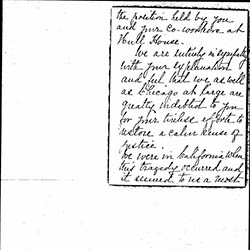 the position held by you
and your co-workers at
Hull House.
We are entirely in sympathy
with your explanation
and feel that we as well
as Chicago at large are
greatly indebted to you
for your tireless efforts to
restore a calm sense of
justice.
We were in California when
this tragedy occurred and
it seemed to us a most